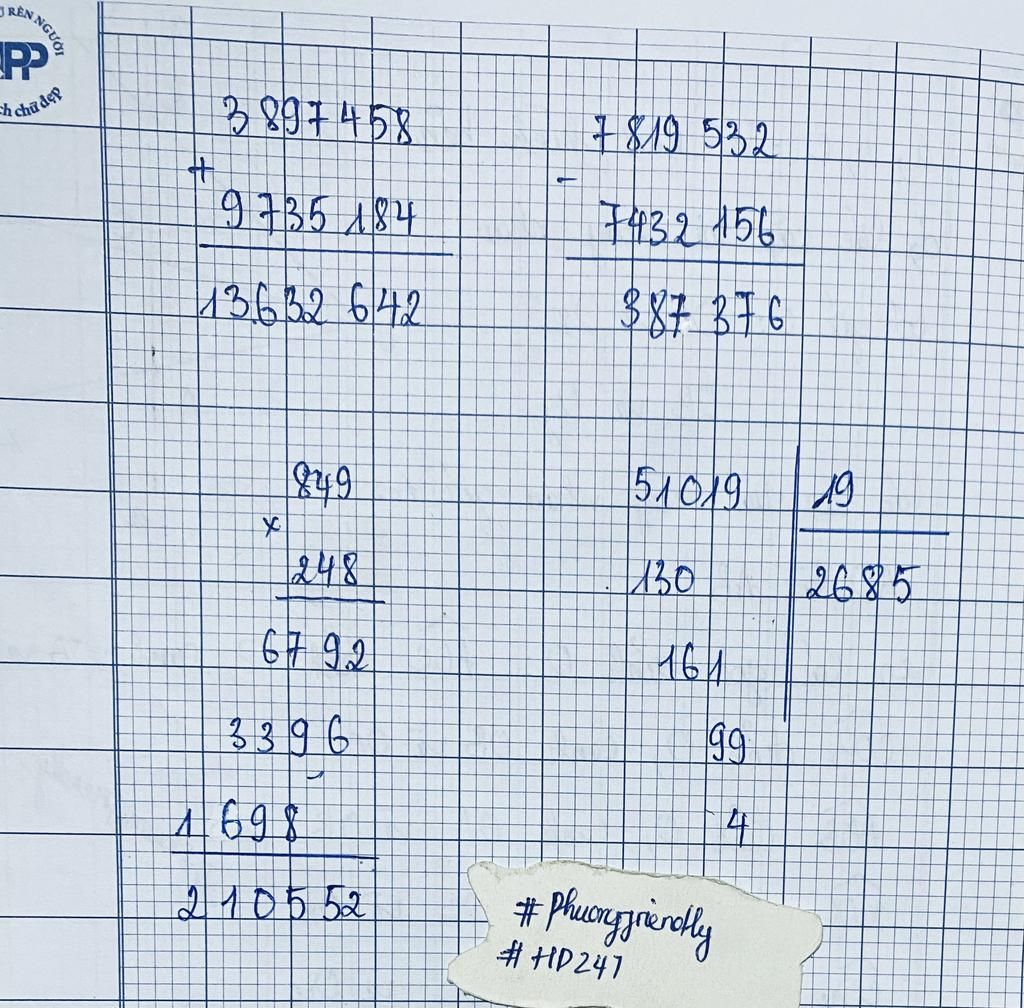 RÈN NGƯỜI
PP
ch chữ đẹp
3 897 458
+
9 735 184
13 632 642
7 819 532
-
7432 156
387 376
849
x
248
6792
3396
1 698
210552
51019 19
130 2685
161
99
4
# Phuongfriendly
# HD247